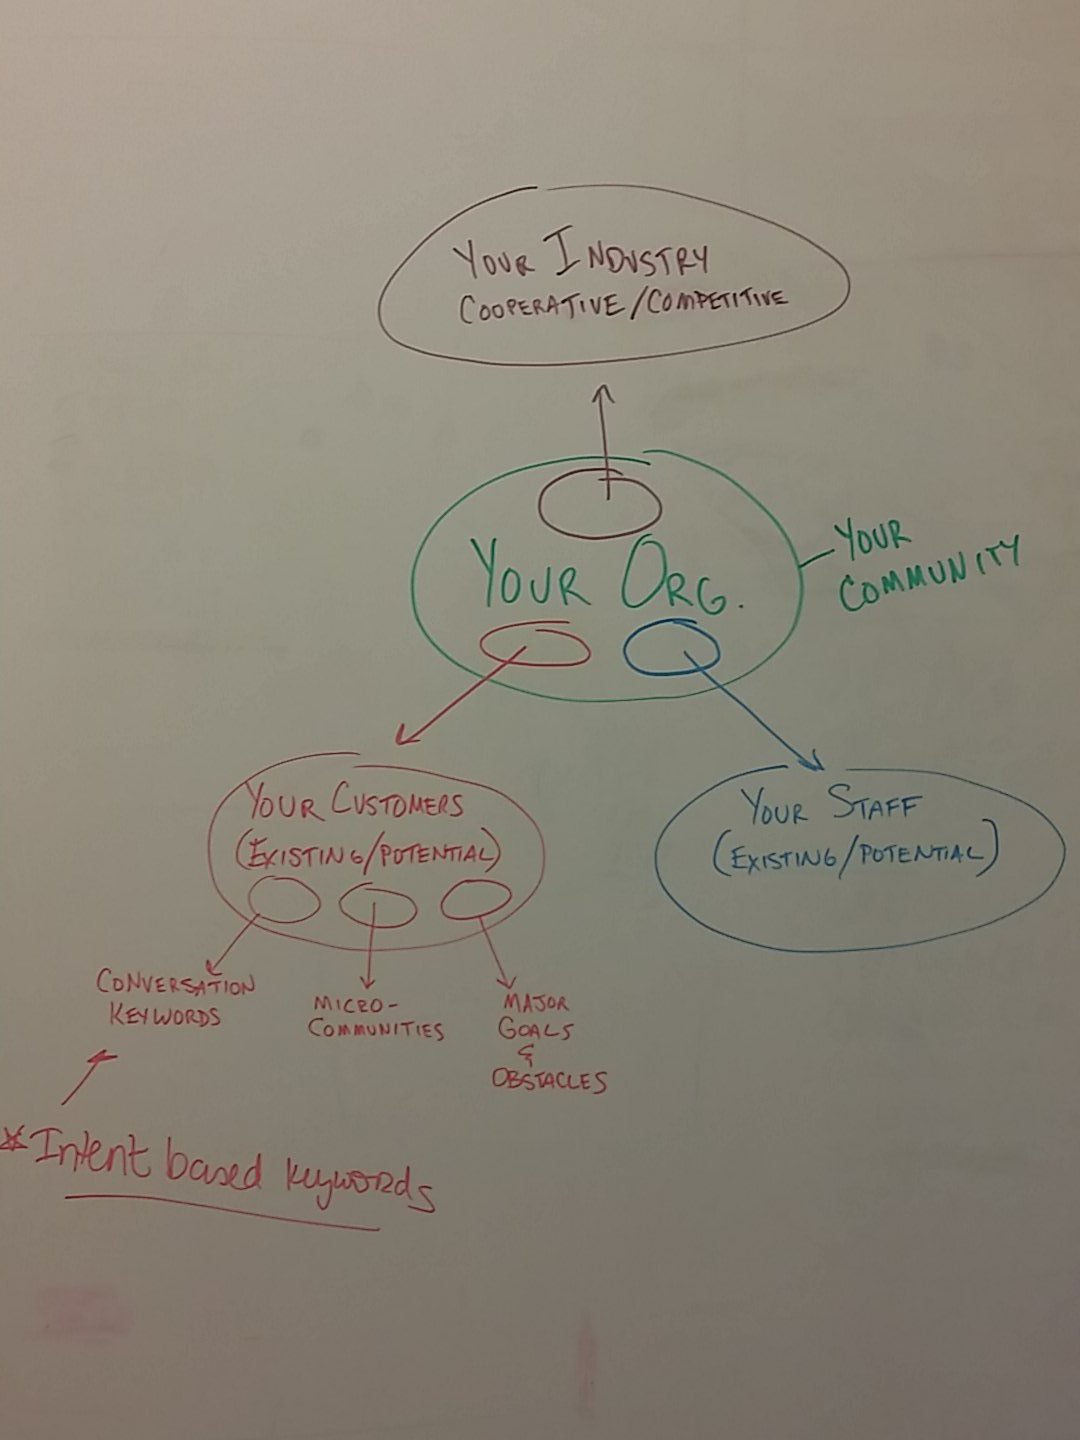 YOUR INDUSTRY
COOPERATIVE/COMPETITIVE
YOUR ORG.
YOUR
COMMUNITY
YOUR CUSTOMERS
(EXISTING/POTENTIAL)
YOUR STAFF
(EXISTING/POTENTIAL)
CONVERSATION
KEYWORDS
MICRO-
COMMUNITIES
MAJOR
GOALS
&
OBSTACLES
*Intent based keywords